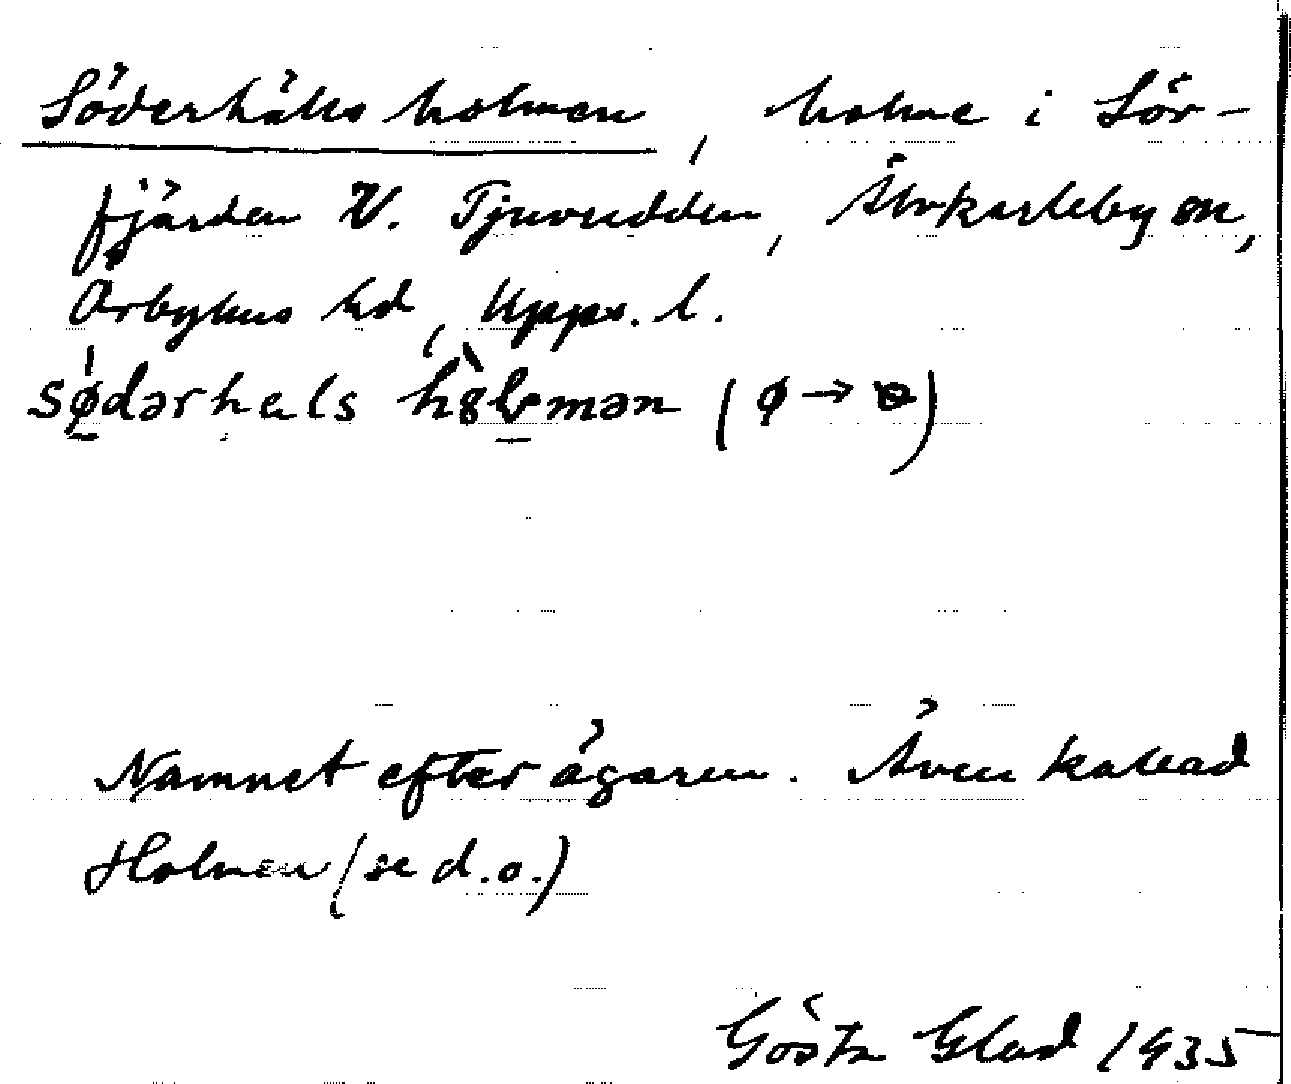 Söderhälls holmen, holme i Lör-
fjärden V. Tjuvudden, Älvkarleby sn,
Örbyhus hd, Upps. l.
sø̀dərhɛls hòlmən (ø → ɵ)
Namnet efter ägaren. Även kallad
Holmen (se d.o.)
Gösta Glad 1935